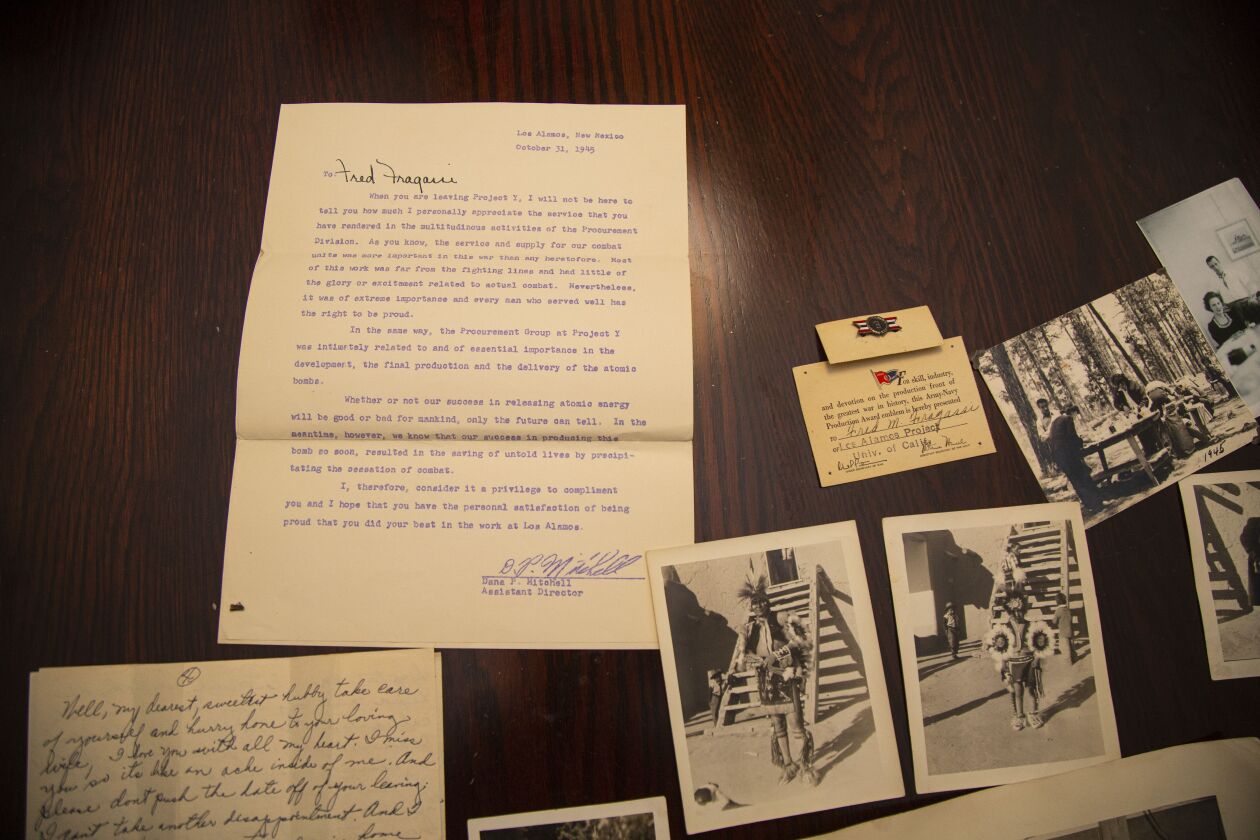 Los Alamos, New Mexico
October 31, 1945
To: Fred Fragassi
When you are leaving Project Y, I will not be here to
tell you how much I personally appreciate the service that you
have rendered in the multitudinous activities of the Procurement
Division. As you know, the service and supply for our combat
units was more important in this war than any heretofore. Most
of this work was far from the fighting lines and had little of
the glory or excitement related to actual combat. Nevertheless,
it was of extreme importance and every man who served well has
the right to be proud.
In the same way, the Procurement Group at Project Y
was intimately related to and of essential importance in the
development, the final production and the delivery of the atomic
bombs.
Whether or not our success in releasing atomic energy
will be good or bad for mankind, only the future can tell. In the
meantime, however, we know that our success in producing this
bomb so soon, resulted in the saving of untold lives by precipi-
tating the cessation of combat.
I, therefore, consider it a privilege to compliment
you and I hope that you have the personal satisfaction of being
proud that you did your best in the work at Los Alamos.
D. P. Mitchell
Dana P. Mitchell
Assistant Director
For skill, industry,
and devotion on the production front of
the greatest war in history, this Army-Navy
Production Award emblem is hereby presented
to Fred M. Fragassi
of Los Alamos Project
Univ. of Calif.
1945
4
Well, my dearest, sweetest hubby take care
of yourself and hurry home to your loving
wife, I love you with all my heart. I miss
you so its like an ache inside of me. And
please dont push the date off of your leaving;
I cant take another disappointment. And I
home